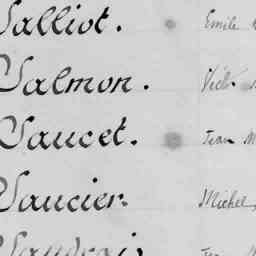 Salliot. Emile
Salmon. Vict
Saucet. Jean M
Saucier. Michel